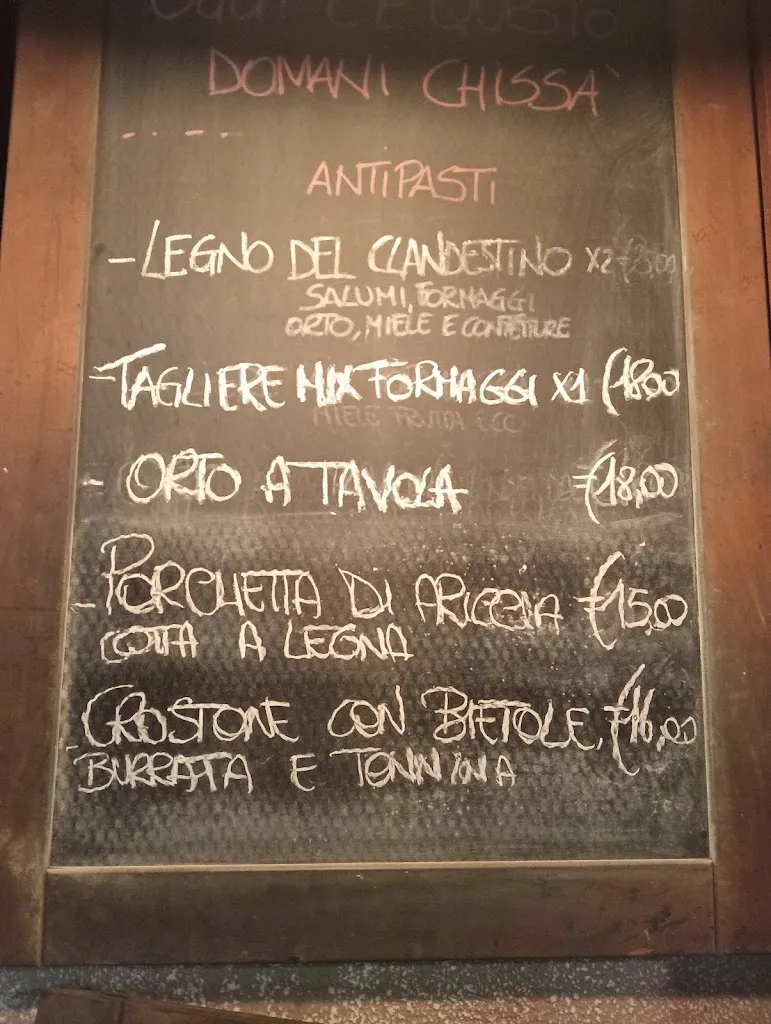 OGGI C'È QUESTO
DOMANI CHISSA'
- . - -
ANTIPASTI
- LEGNO DEL CLANDESTINO x2
SALUMI, FORMAGGI
ORTO, MIELE E CONFETTURE
- TAGLIERE MIX FORMAGGI x1 €18,00
MIELE FRUTTA ECC
- ORTO A TAVOLA €18,00
- PORCHETTA DI ARICCIA €15,00
COTTA A LEGNA
- CROSTONE CON BIETOLE, €16,00
BURRATA E TONNINA